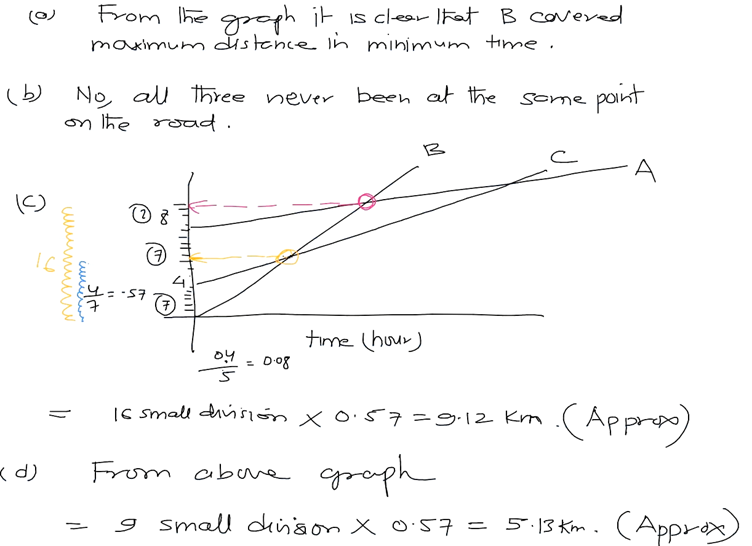 (a) From the graph it is clear that B covered
maximum distance in minimum time.
(b) No, all three never been at the same point
on the road.
B
C
A
(C)
8
7
16
4
4/7 = .57
7
time (hour)
0.4/5 = 0.08
= 16 small division × 0.57 = 9.12 km. (Approx)
(d) From above graph
= 9 small divison × 0.57 = 5.13 km. (Approx)